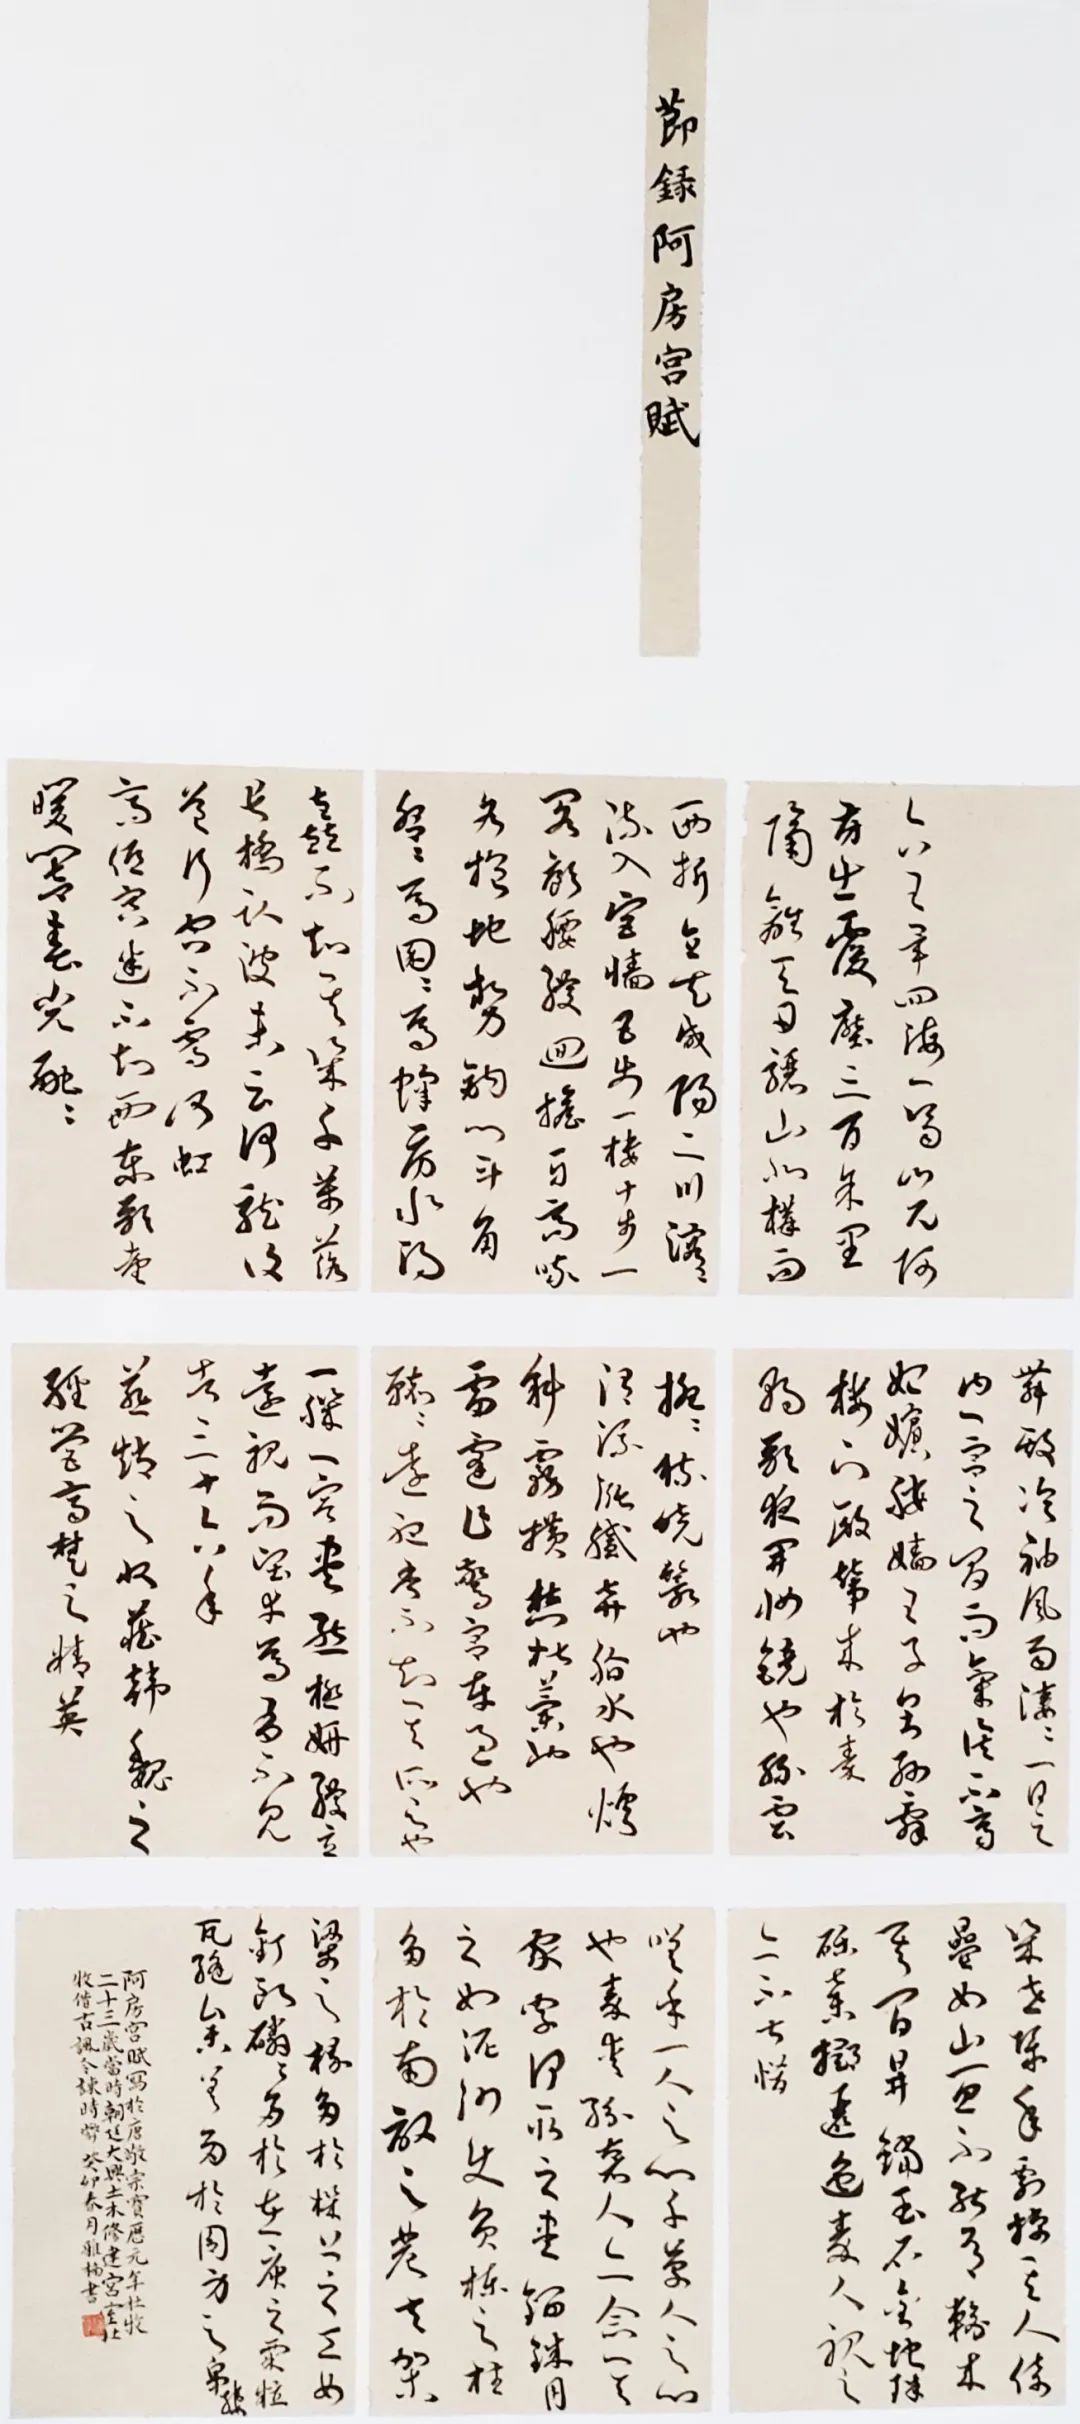 節録阿房宫賦
六王畢四海一蜀山兀阿
房出覆壓三百余里
隔離天日驪山北構而
西折直走咸陽二川溶〻
流入宫墻五步一樓十步一
閣廊腰縵迴檐牙高啄
各抱地勢鈎心斗角
盤〻焉囷〻焉蜂房水渦
矗不知其幾千萬落
長橋卧波未雲何龍復
道行空不霽何虹
高低冥迷不知西東歌臺
暖響春光融〻
舞殿冷袖風雨凄〻一日之
内一宫之間而氣候不齊
妃嬪媵嬙王子皇孫辭
樓下殿輦來於秦
朝歌夜開妝鏡也緑雲
擾〻梳曉鬟也
渭流漲膩弃脂水也煙
斜霧横焚椒蘭也
雷霆乍驚宫車過也
轆〻遠聽杳不知其所之也
一肌一容盡態極妍縵立
遠視而望幸焉有不見
者三十六年
燕趙之收藏韓魏之
經營齊楚之精英
幾世幾年剽掠其人倚
疊如山一旦不能有輸來
其間鼎鐺玉石金塊珠
礫棄擲邐迤秦人視之
亦不甚惜
嗟乎一人之心千萬人之心
也秦愛紛奢人亦念其
家奈何取之盡錙銖用
之如泥沙使負棟之柱
多於南畝之農夫架
梁之椽多於機上之工女
釘頭磷〻多於在庾之粟粒
瓦縫參差多於周身之帛縷
阿房宫賦寫於唐敬宗寶歷元年杜牧
二十三歲當時朝廷大興土木修建宫室杜
牧借古諷今諫時弊 癸卯春月雅梅書